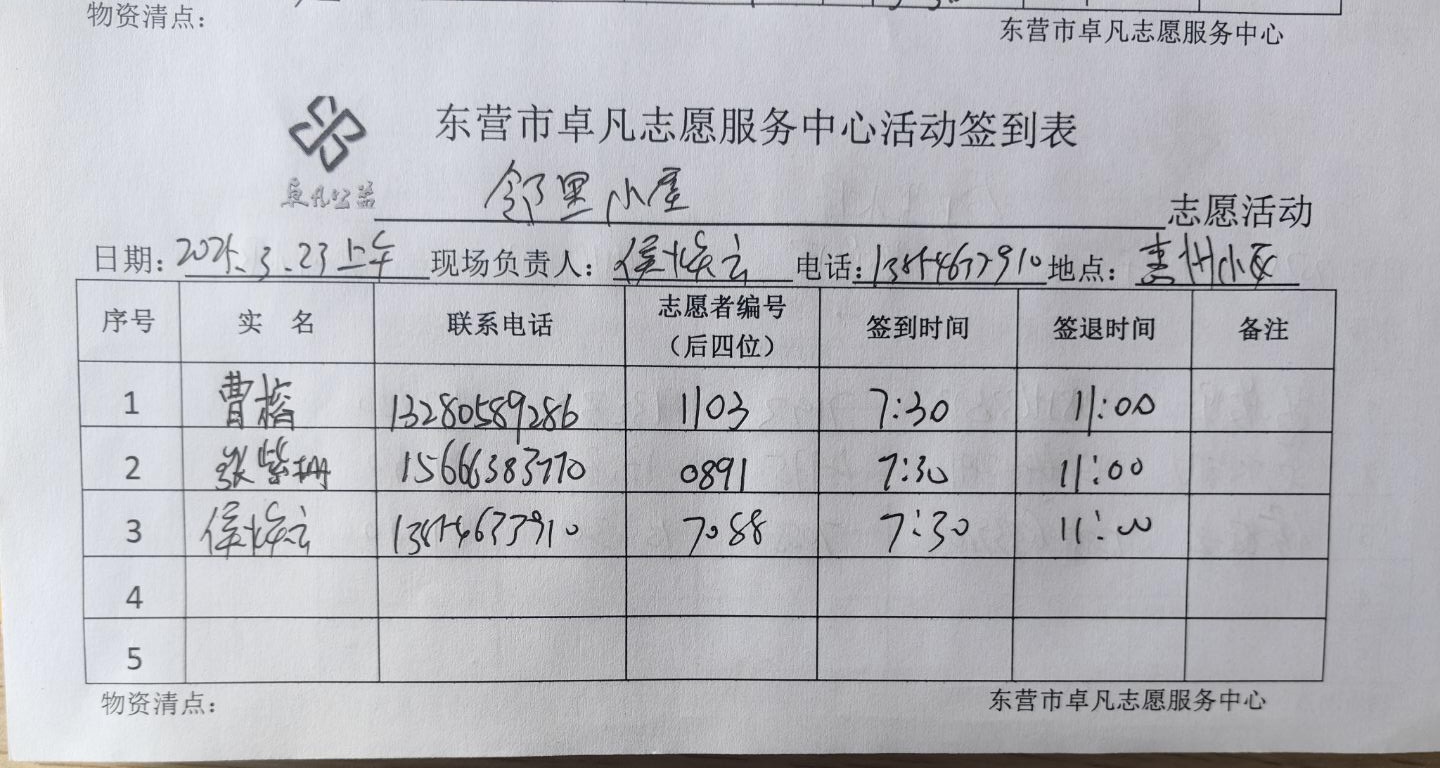 物资清点： 东营市卓凡志愿服务中心
东营市卓凡志愿服务中心活动签到表
卓凡公益
邻里小屋 志愿活动
日期：2025.3.23上午 现场负责人：侯焕云 电话：13854677910 地点：惠州小区
序号 实 名 联系电话 志愿者编号（后四位） 签到时间 签退时间 备注
1 曹 13280589286 1103 7:30 11:00
2 张紫珊 15666383770 0891 7:30 11:00
3 侯焕云 13854677910 7088 7:30 11:00
4
5
物资清点： 东营市卓凡志愿服务中心